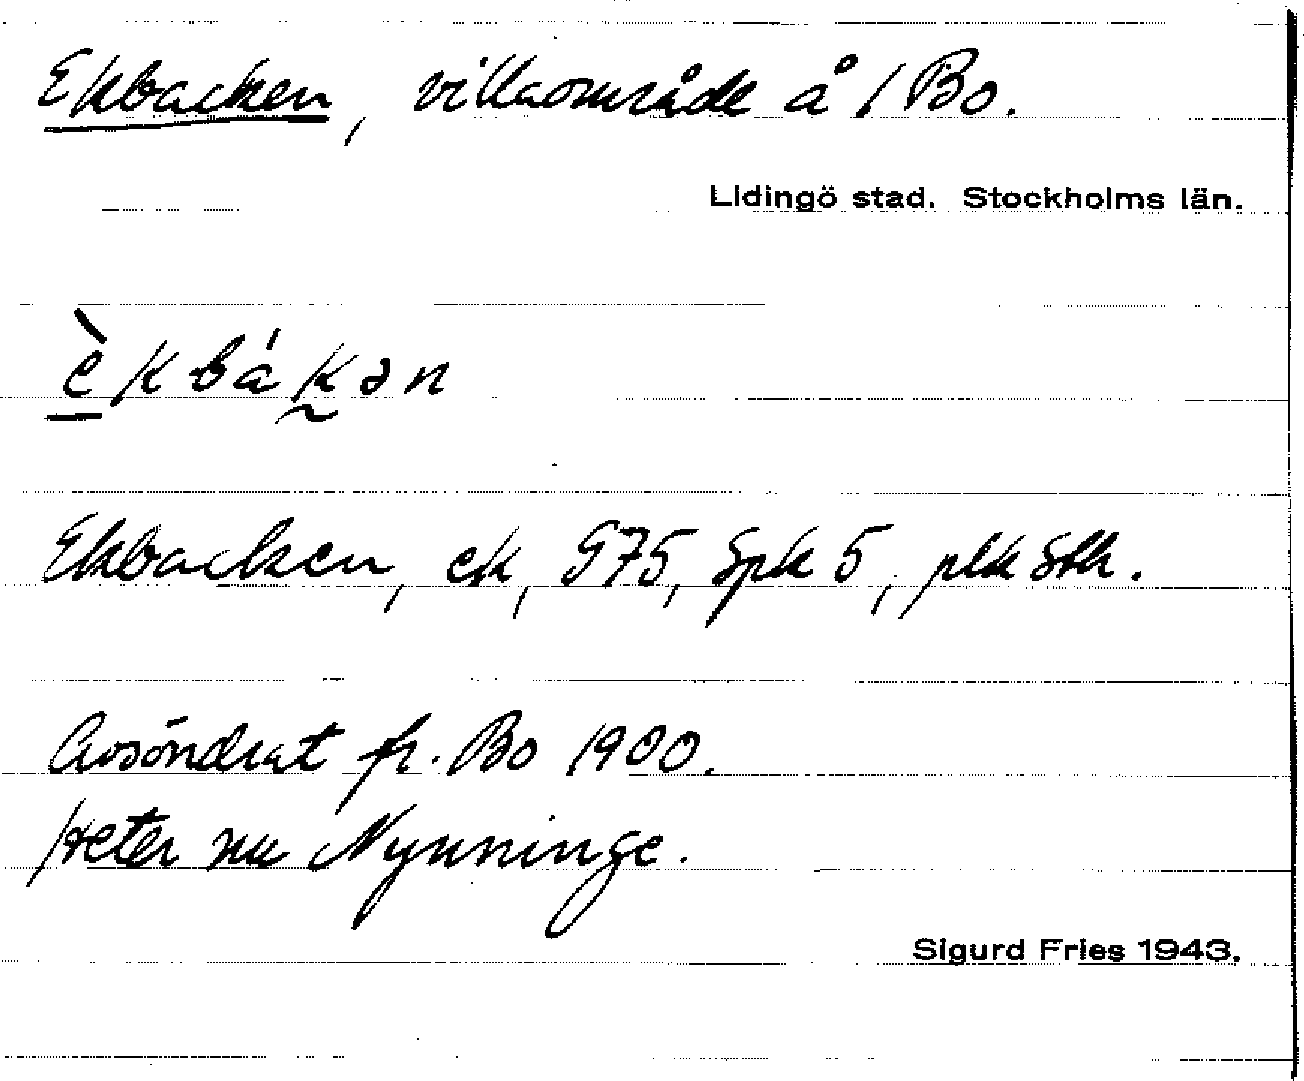 Ekbacken, villaområde å 1 Bo.
Lidingö stad. Stockholms län.
èkbákən
Ekbacken, ek, 975, Spk 5, plk Sth.
Avsöndrat fr. Bo 1900.
Heter nu Nynninge.
Sigurd Fries 1943.